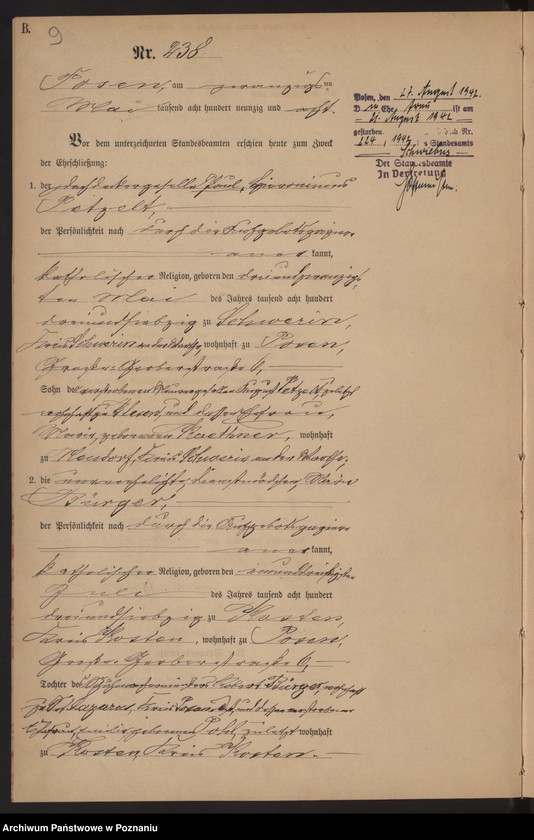 B.
9
Nr. 238
Posen, am zwanzigsten
Mai tausend acht hundert neunzig und acht.
Vor dem unterzeichneten Standesbeamten erschien heute zum Zweck
der Eheschließung:
1. der Dachdeckergeselle Paul, Hieronimus
Petzelt,
der Persönlichkeit nach durch die Aufgebotszeugen
anerkannt,
katholischer Religion, geboren den dreiundzwanzig-
sten Mai des Jahres tausend acht hundert
dreiundsiebzig zu Schwerin,
Kreis Schwerin an der Warthe, wohnhaft zu Posen,
Große Gerberstraße 6,
Sohn des verstorbenen August Petzelt, zuletzt
wohnhaft zu und dessen Ehefrau,
Marie, geborenen Kaethner, wohnhaft
zu Neudorf, Kreis Schwerin an der Warthe,
2. die unverehelichte, Dienstmädchen, Maria
Bürger,
der Persönlichkeit nach durch die Aufgebotszeugen
anerkannt,
katholischer Religion, geboren den einunddreißigsten
Juli des Jahres tausend acht hundert
dreiundsiebzig zu Kosten,
Kreis Kosten, wohnhaft zu Posen,
Große Gerberstraße 6,
Tochter des Schuhmachers Robert Bürger, wohnhaft
zu St. Lazarus, Kreis Posen und dessen verstorbener
Ehefrau, geborenen zuletzt wohnhaft
zu Kosten, Kreis Kosten.
Posen, den 27. August 1942.
D Ehefrau ist am
21. August 1942
gestorben. Nr.
224, 1942 Standesamts
Schwiebus
Der Standesbeamte
In Vertretung
Archiwum Państwowe w Poznaniu